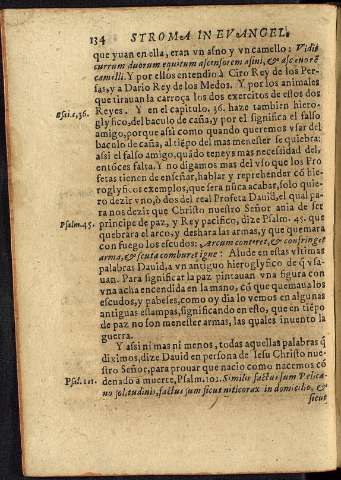 134 STROMA IN EVANGEL.
que yuan en ella, eran vn asno y vn camello: Vidit
currum duorum equitum ascensorem asini, & ascensorē
camelli. Y por ellos entendiò à Ciro Rey de los Per-
sas, y a Dario Rey de los Medos. Y por los animales
que tirauan la carroça los dos exercitos de estos dos
Reyes. Y en el capitulo. 36. haze tambien hiero-
Esai. c. 36.
glyfico, del baculo de caña, y por el significa el falso
amigo, porque assi como quando queremos vsar del
baculo de caña, al tiēpo del mas menester se quiebra:
assi el falso amigo, quādo teneys mas necessidad del,
entōces falta. Y no digamos mas del vso que los Pro
fetas tienen de enseñar, hablar y reprehender cō hie-
roglyficos exemplos, que sera nūca acabar, solo quie-
ro dezir vno, ò dos del real Profeta Dauid, el qual pa-
ra nos dezir que Christo nuestro Señor auia de ser
Psalm. 45.
principe de paz, y Rey pacifico, dize Psalm. 45. que
quebrára el arco, y deshara las armas, y que quemara
con fuego los escudos: Arcum conteret, & confringet
arma, & scuta comburet igne: Alude en estas vltimas
palabras Dauid, a vn antiguo hieroglyfico de q̃ vsa-
uan. Para significar la paz pintauan vna figura con
vna acha encendida en la mano, cō que quemaua los
escudos, y paueses, como oy dia lo vemos en algunas
antiguas estampas, significando en esto, que en tiēpo
de paz no son menester armas, las quales inuento la
guerra.
Y assi ni mas ni menos, todas aquellas palabras q̃
diximos, dize Dauid en persona de Iesu Christo nue-
stro Señor, para prouar que nacio como nacemos cō
Psal. 101.
denado a muerte, Psalm. 101. Similis factus sum Pelica-
no solitudinis, factus sum sicut niticorax in domicilio, &
sicut